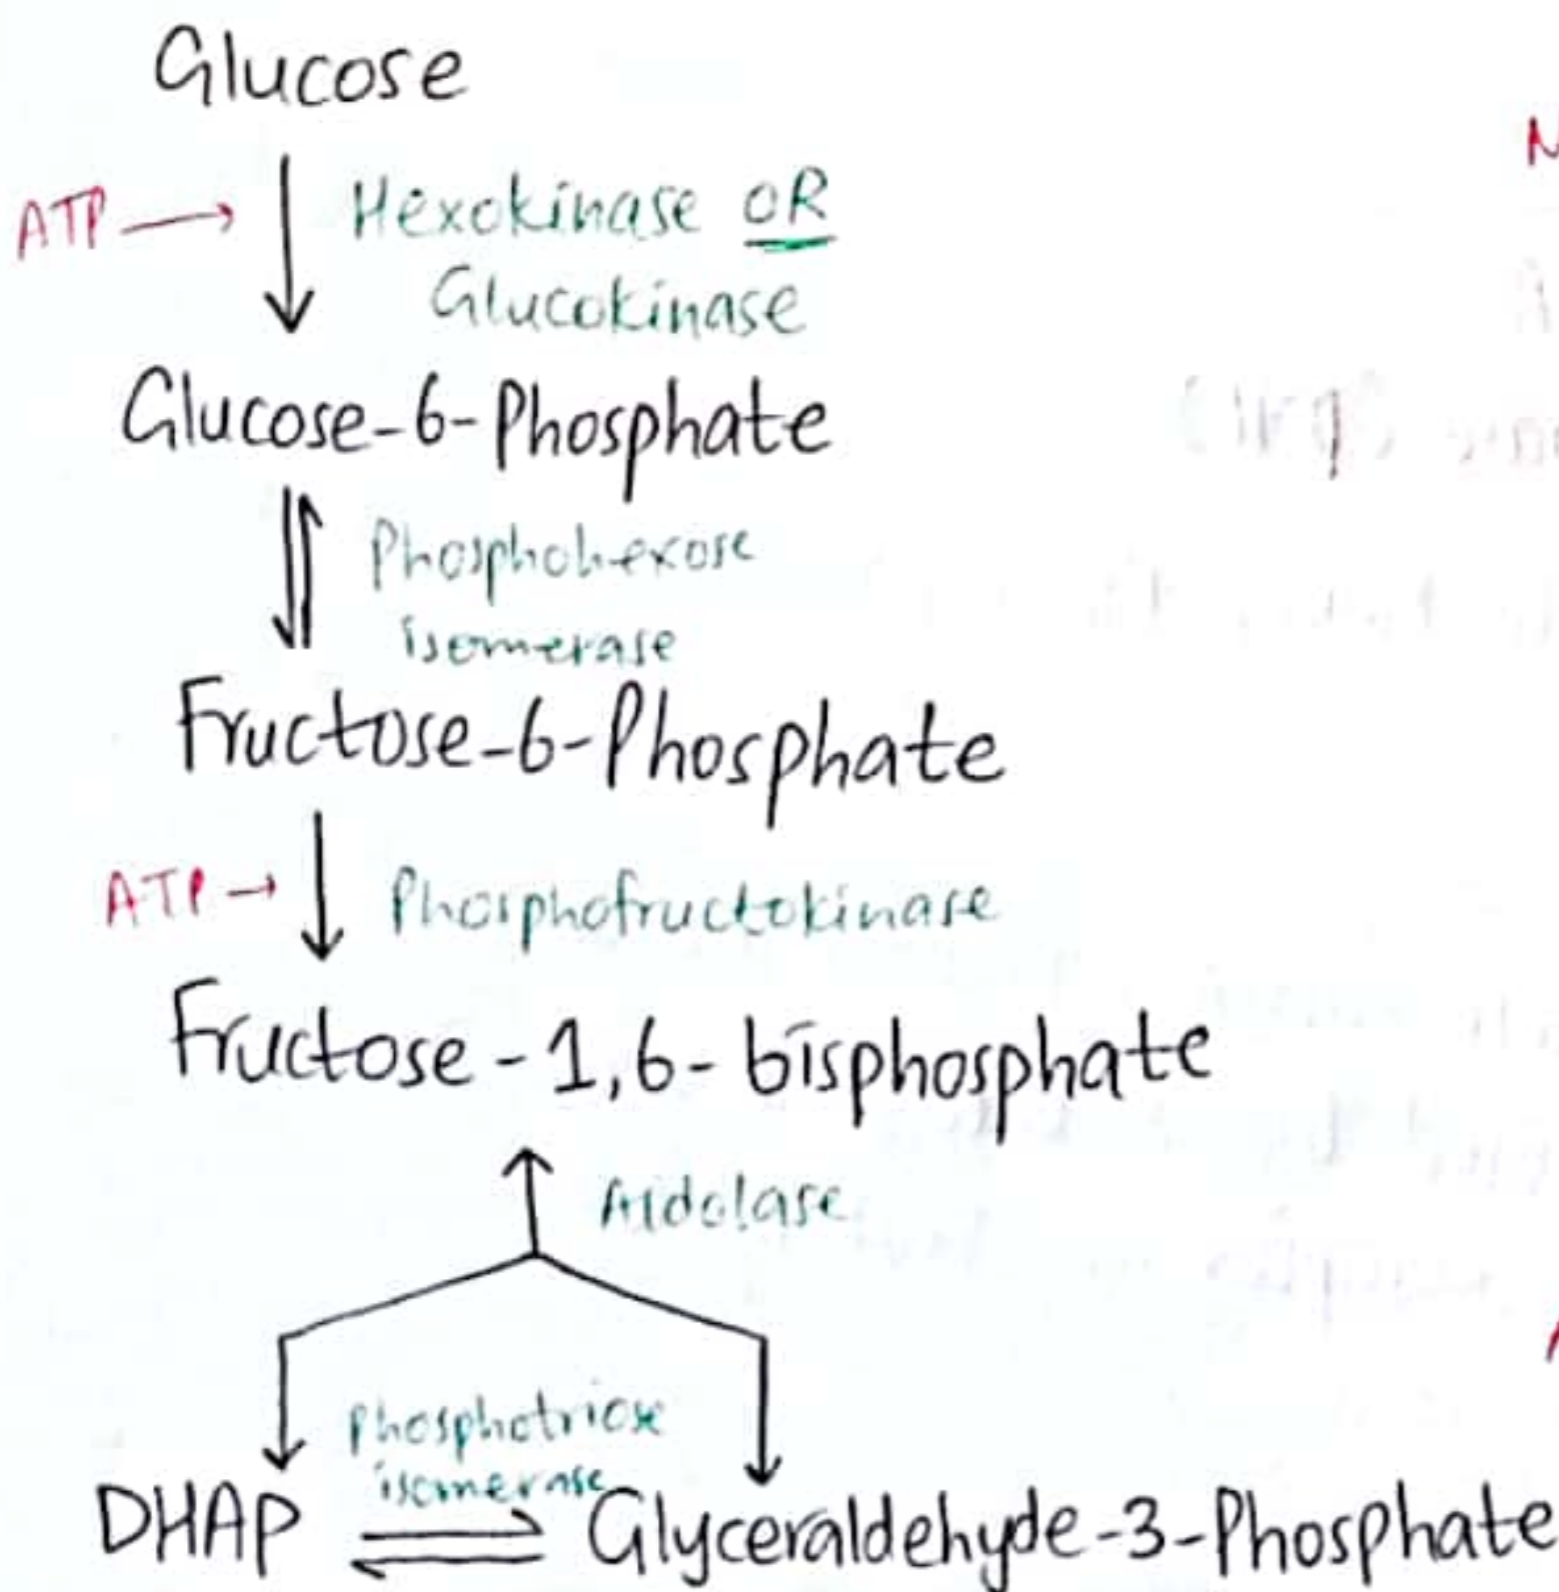 Glucose
ATP → Hexokinase OR
Glucokinase
Glucose-6-Phosphate
Phosphohexose
isomerase
Fructose-6-Phosphate
ATP → Phosphofructokinase
Fructose-1,6-bisphosphate
Aldolase
Phosphotriose
isomerase
DHAP ⇌ Glyceraldehyde-3-Phosphate